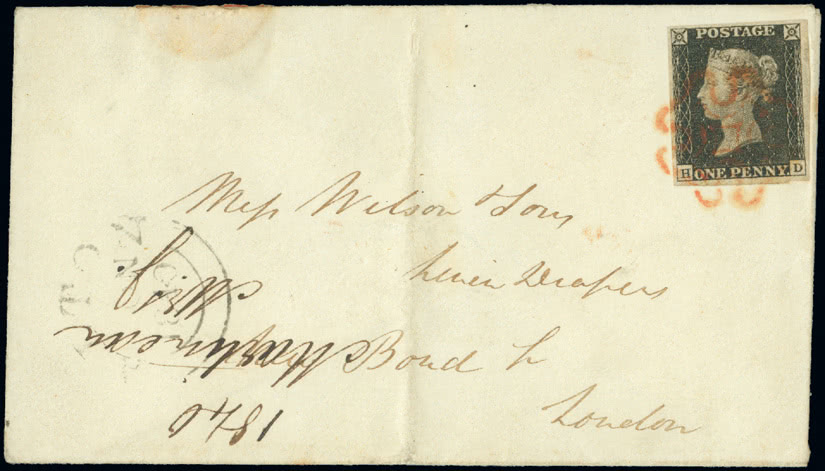 POSTAGE
H ONE PENNY D
Mess Wilson & Sons
Linen Drapers
Bond St
London
Miss
Martineau
1840